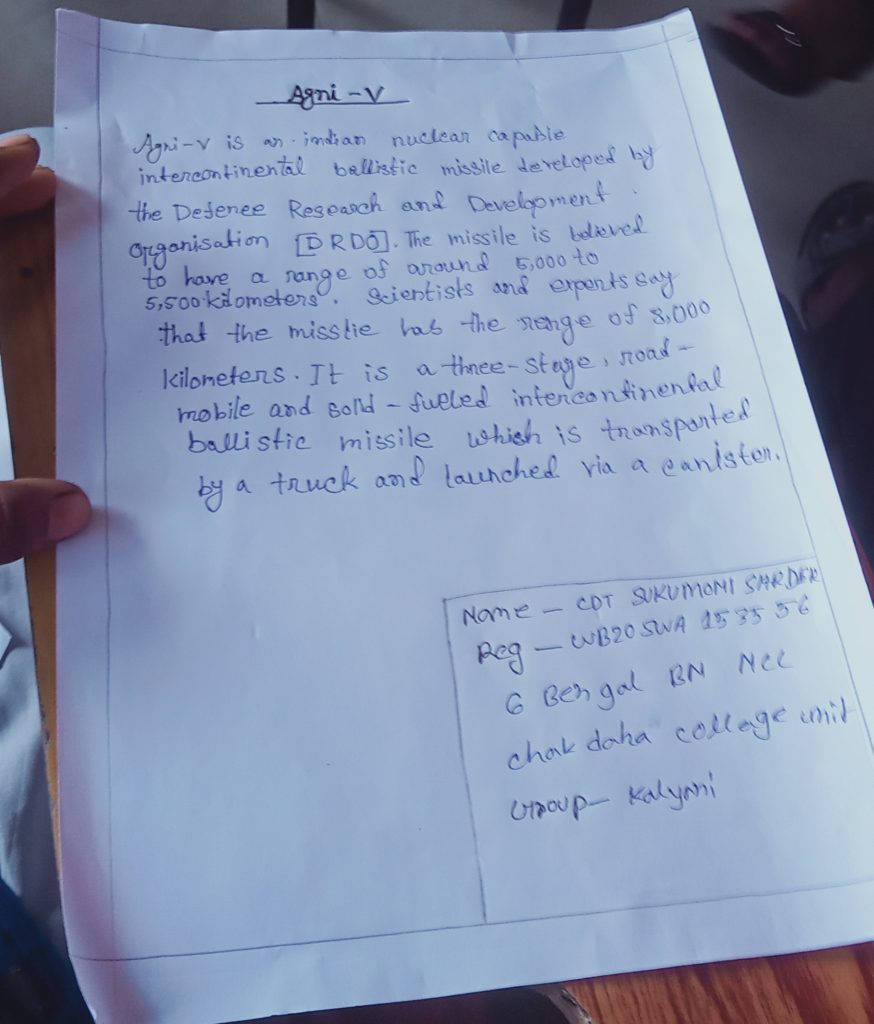 Agni-V
Agni-v is an indian nuclear capable
intercontinental ballistic missile developed by
the Defence Research and Development
Organisation [DRDO]. The missile is believed
to have a range of around 5,000 to
5,500 kilometers. Scientists and experts say
that the misslie has the renge of 8,000
kilometers. It is a three-stage, road-
mobile and solid-fueled intercontinental
ballistic missile which is transported
by a truck and launched via a canister.
Name - CDT SUKUMONI SARDER
Reg - WB20 SWA 153556
6 Bengal BN NCC
chakdaha college unit
Group - Kalyani